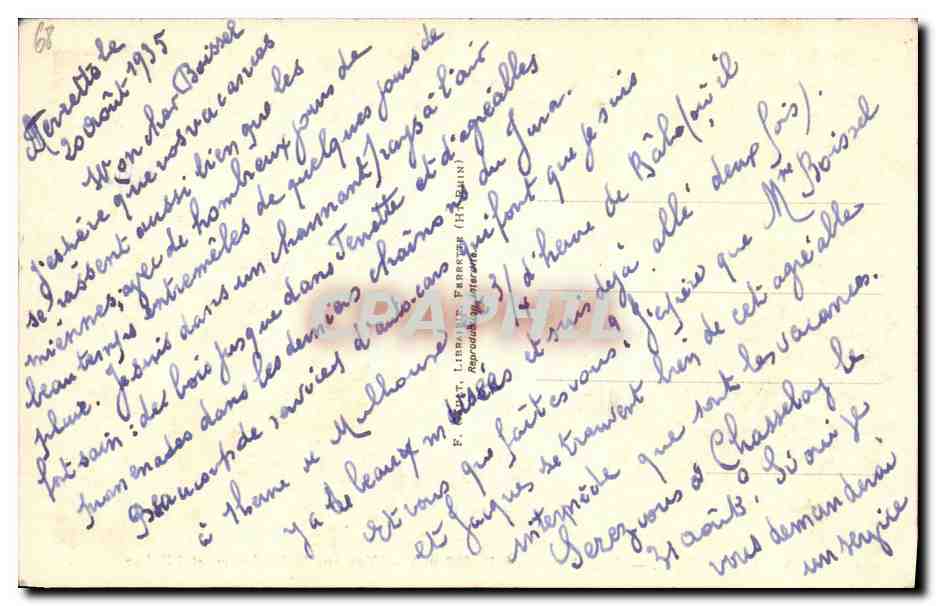 68
Ferrette le
20 Août 1935
Mon cher Boissel
J'espère que vos vacances
se passent aussi bien que les
miennes, avec de nombreux jours de
beau temps entremêlés de quelques jours de
pluie. Je suis dans un charmant pays à l'air
fort sain : des bois jusque dans Ferrette et d'agréables
promenades dans les derniers chaînons du Jura.
Beaucoup de services d'auto-cars qui font que je suis
à 1 heure de Mulhouse et 3/4 d'heure de Bâle (où il
y a de beaux musées et suis déjà allé deux fois).
Et vous que faites vous ? J'espère que Mme Boissel
et Jacques se trouvent bien de cet agréable
intermède que sont les vacances.
Serez vous à Chasselay le
31 août ? Si oui je
vous demanderai
un service
F. LIBRAIRE, FERRETTE (HT-RHIN)
Reproduction interdite
CPAPHIL